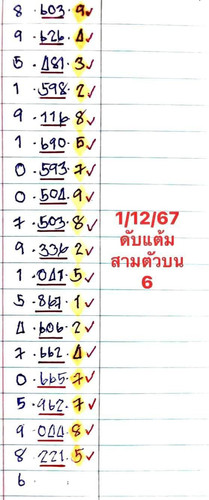 8 · 603 · 9✓
9 · 626 · 4✓
5 · 481 · 3✓
1 · 598 · 2✓
9 · 116 · 8✓
1 · 690 · 5✓
0 · 593 · 7✓
0 · 504 · 9✓
7 · 503 · 8✓
9 · 336 · 2✓
1 · 041 · 5✓
5 · 867 · 1✓
4 · 606 · 2✓
7 · 662 · 4✓
0 · 665 · 7✓
5 · 962 · 7✓
9 · 044 · 8✓
8 · 221 · 5✓
6 ·
1/12/67
ดับแต้ม
สามตัวบน
6